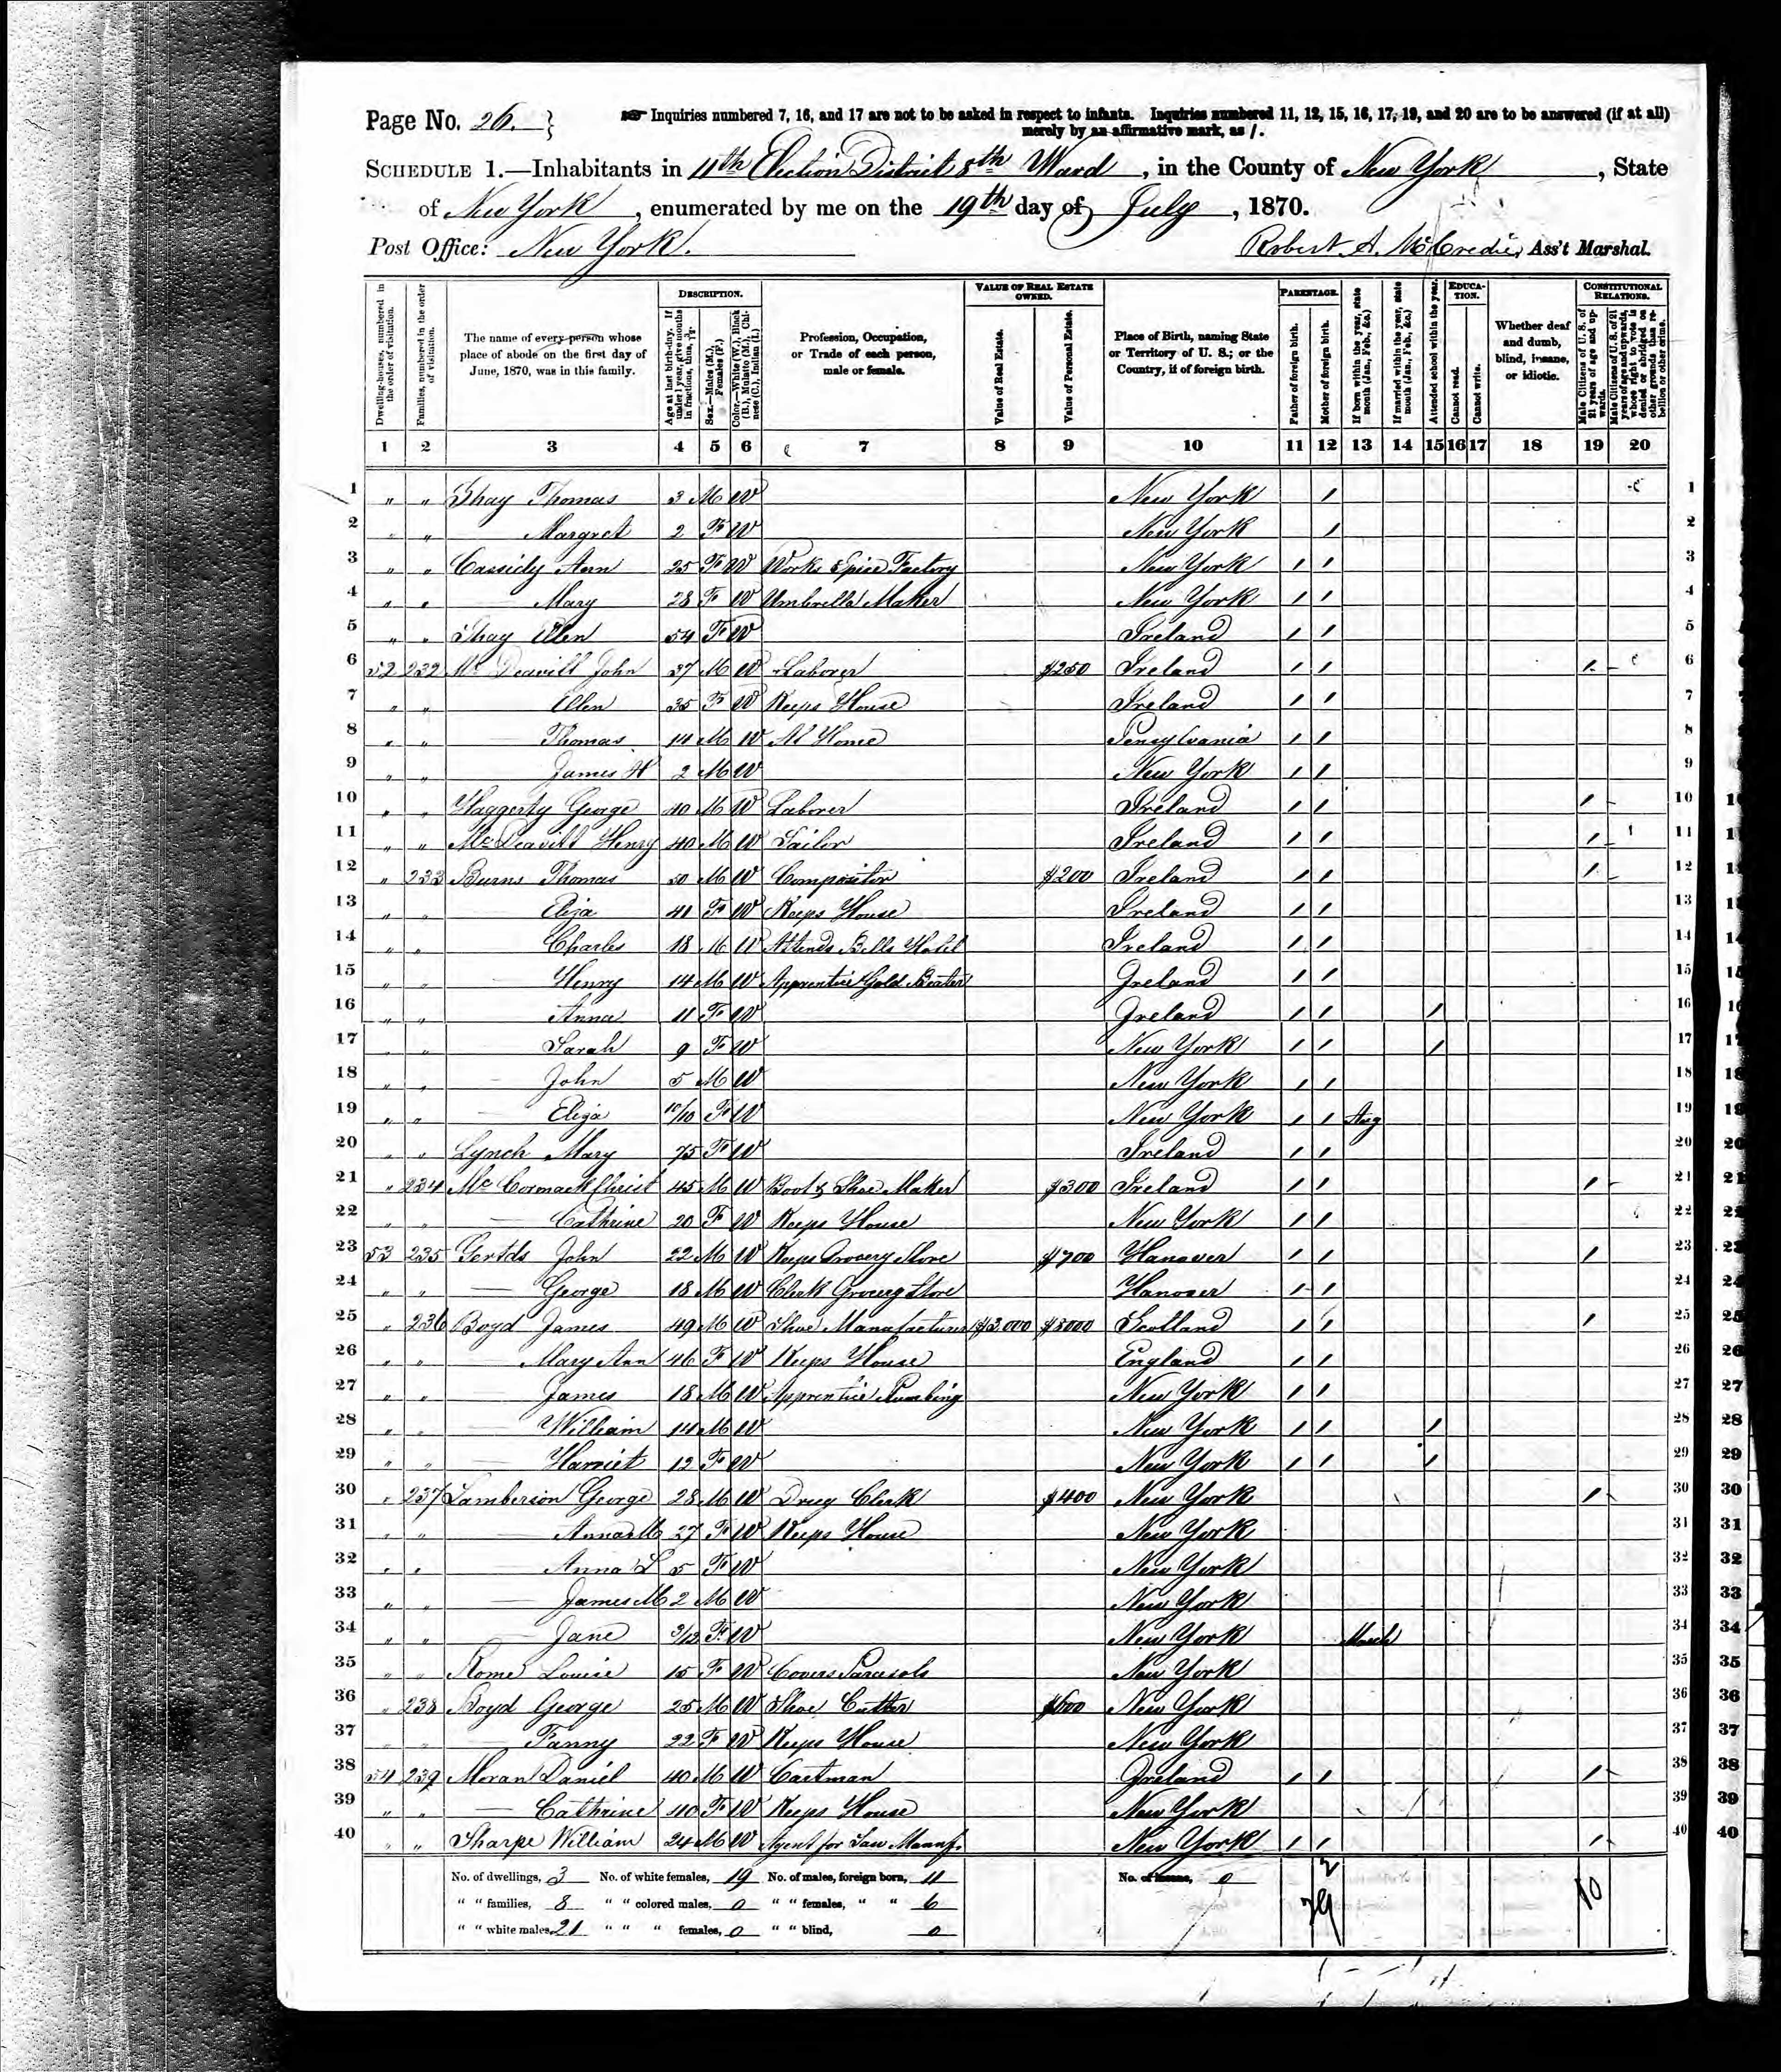 Page No. 26. }
Inquiries numbered 7, 16, and 17 are not to be asked in respect to infants. Inquiries numbered 11, 12, 15, 16, 17, 19, and 20 are to be answered (if at all)
merely by an affirmative mark, as /.
SCHEDULE 1.—Inhabitants in 11th Election District 8th Ward, in the County of New York, State
of New York, enumerated by me on the 19th day of July, 1870.
Post Office: New York. Robert A. McCredie, Ass't Marshal.
Dwelling-houses, numbered in the order of visitation.
Families, numbered in the order of visitation.
The name of every person whose place of abode on the first day of June, 1870, was in this family.
DESCRIPTION.
Age at last birth-day. If under 1 year, give months in fractions, thus, 3/12.
Sex.—Males (M.), Females (F.)
Color.—White (W.), Black (B.), Mulatto (M.), Chinese (C.), Indian (I.)
Profession, Occupation, or Trade of each person, male or female.
VALUE OF REAL ESTATE OWNED.
Value of Real Estate.
Value of Personal Estate.
Place of Birth, naming State or Territory of U. S.; or the Country, if of foreign birth.
PARENTAGE.
Father of foreign birth.
Mother of foreign birth.
If born within the year, state month (Jan., Feb., &c.)
If married within the year, state month (Jan., Feb., &c.)
Attended school within the year.
EDUCATION.
Cannot read.
Cannot write.
Whether deaf and dumb, blind, insane, or idiotic.
CONSTITUTIONAL RELATIONS.
Male Citizens of U. S. of 21 years of age and upwards.
Male Citizens of U. S. of 21 years of age and upwards, whose right to vote is denied or abridged on other grounds than rebellion or other crime.
1 2 3 4 5 6 7 8 9 10 11 12 13 14 15 16 17 18 19 20
1 " " Shay Thomas 3 M W New York / 1
2 " " Margret 2 F W New York / 2
3 " " Cassidy Ann 25 F W Works Spice Factory New York / / 3
4 " " — Mary 28 F W Umbrella Maker New York / / 4
5 " " Shay Ellen 54 F W Ireland / / 5
6 52 232 Mc Deavitt John 37 M W Laborer $250 Ireland / / / 6
7 " " — Ellen 35 F W Keeps House Ireland / / 7
8 " " — Thomas 14 M W At Home Pensylvania / / 8
9 " " — James H 2 M W New York / / 9
10 " " Haggerty George 40 M W Laborer Ireland / / / 10
11 " " McDeavitt Henry 40 M W Tailor Ireland / / / 11
12 " 233 Burns Thomas 50 M W Compositor $200 Ireland / / / 12
13 " " — Eliza 41 F W Keeps House Ireland / / 13
14 " " — Charles 18 M W Attends Bells Hotel Ireland / / 14
15 " " — Henry 14 M W Apprentice Gold Beater Ireland / / 15
16 " " — Anna 11 F W Ireland / / / 16
17 " " — Sarah 9 F W New York / / / 17
18 " " — John 5 M W New York / / 18
19 " " — Eliza 10/10 F W New York / / Aug 19
20 " " Lynch Mary 75 F W Ireland / / 20
21 " 234 Mc Cormack Christ 45 M W Boot & Shoe Maker $300 Ireland / / / 21
22 " " — Cathrine 20 F W Keeps House New York / / 22
23 53 235 Gertds John 22 M W Keeps Grocery Store $700 Hanover / / / 23
24 " " — George 18 M W Clerk Grocery Store Hanover / / 24
25 " 236 Boyd James 49 M W Shoe Manufacturer $3000 $8000 Scotland / / / 25
26 " " — Mary Ann 46 F W Keeps House England / / 26
27 " " — James 18 M W Apprentice Plumbing New York / / 27
28 " " — William 14 M W New York / / / 28
29 " " — Harriet 12 F W New York / / / 29
30 " 237 Lamberson George 28 M W Drug Clerk $400 New York / 30
31 " " — Anna M 27 F W Keeps House New York 31
32 " " — Anna L 5 F W New York 32
33 " " — James M 2 M W New York 33
34 " " — Jane 3/12 F W New York March 34
35 " " Rome Louise 15 F W Covers Parasols New York 35
36 " 238 Boyd George 25 M W Shoe Cutter $600 New York 36
37 " " — Fanny 22 F W Keeps House New York 37
38 54 239 Moran Daniel 40 M W Cartman Ireland / / / 38
39 " " — Cathrine 40 F W Keeps House New York 39
40 " " Sharpe William 24 M W Agent for Saw Manuf. New York / / / 40
No. of dwellings, 3 No. of white females, 19 No. of males, foreign born, 11 No. of insane, 0
" " families, 8 " " colored males, 0 " " females, " " 6
" " white males, 21 " " " females, 0 " " blind, 0
2
29
10